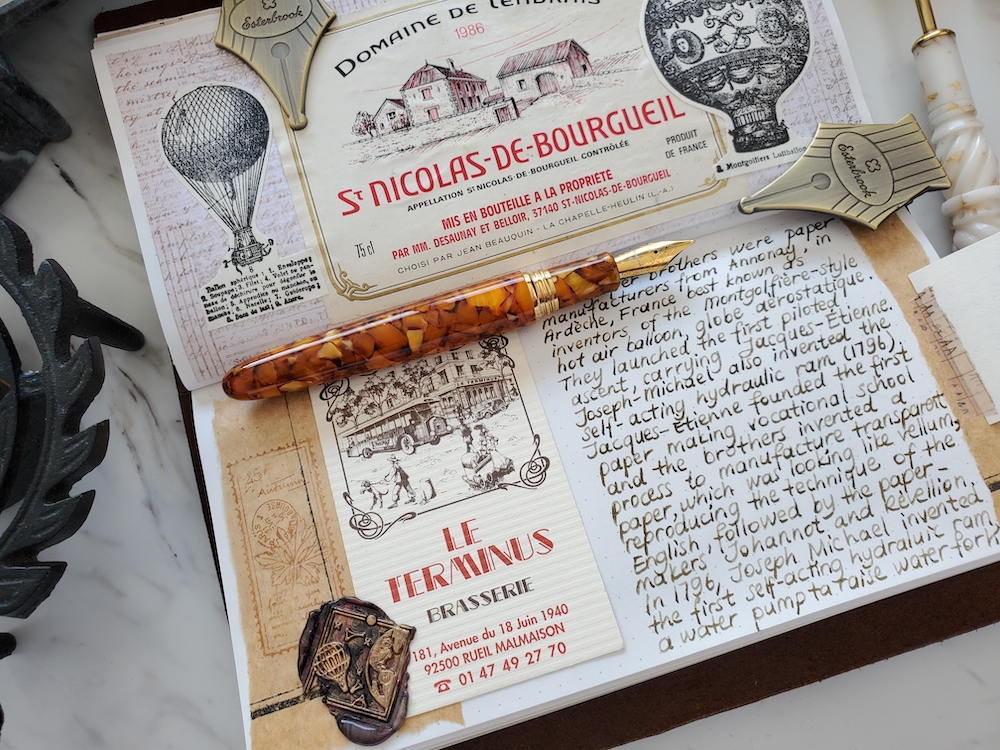 Esterbrook
DOMAINE DE
1986
ST NICOLAS-DE-BOURGUEIL
APPELLATION ST NICOLAS-DE-BOURGUEIL CONTRÔLÉE
PRODUIT
DE FRANCE
MIS EN BOUTEILLE A LA PROPRIÉTÉ
75 cl
PAR MM. DESAUNAY ET BELLOIR, 37140 ST-NICOLAS-DE-BOURGUEIL
CHOISI PAR JEAN BEAUQUIN - LA CHAPELLE-HEULIN (L.-A.)
Esterbrook
Ballon sphérique : 1. Enveloppe;
2. Soupape; 3. Filet;
8. Sacs de lest; 9. Ancre.
brothers were paper
manufacturers from Annonay, in
Ardèche, France best known as
inventors of the montgolfière-style
hot air balloon, globe aérostatique.
They launched the first piloted
ascent, carrying Jacques-Étienne.
Joseph-michael also invented the
self-acting hydraulic ram (1796).
Jacques-Étienne founded the first
paper making vocational school
and the brothers invented a
process to manufacture transparent
paper, which was looking like vellum,
reproducing the technique of the
English, followed by the paper-
makers Johannot and Réveillon,
in 1796, Joseph Michael invented
the first self-acting hydraluic ram,
a water pump to raise water
LE
TERMINUS
BRASSERIE
181, Avenue du 18 Juin 1940
92500 RUEIL MALMAISON
☎ 01 47 49 27 70